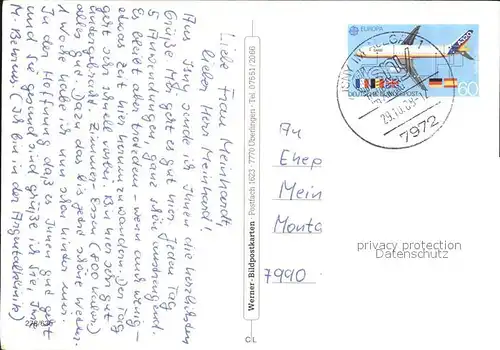 Liebe Frau Meinhardt,
lieber Herr Meinhard!
Aus Isny sende ich Ihnen die herzlichsten
Grüße. Mir geht es gut hier. Jeden Tag
5 Anwendungen, ganz schön anstrengend.
Es bleibt aber trotzdem – wenn auch wenig –
etwas Zeit hier herum zu wandern. Der Tag
geht sehr schnell vorbei. Bin hier sehr gut
untergebracht. Zimmer – Essen (800 Kalor.)
alles gut. Dazu das bis jetzt schöne Wetter.
1 Woche habe ich nun schon hinter mir.
In der Hoffnung daß es Ihnen gut geht
und Sie gesund sind grüße ich Sie, Ihre
(Ich bin in der Argentalklinik)
276/636
Werner-Bildpostkarten Postfach 1623 · 7770 Überlingen · Tel. 07551/2066
CL
EUROPA
DEUTSCHE BUNDESPOST
60
A320
ISNY IM ALLGÄU
7972
An
Ehep
Mein
Monta
7990
privacy protection
Datenschutz